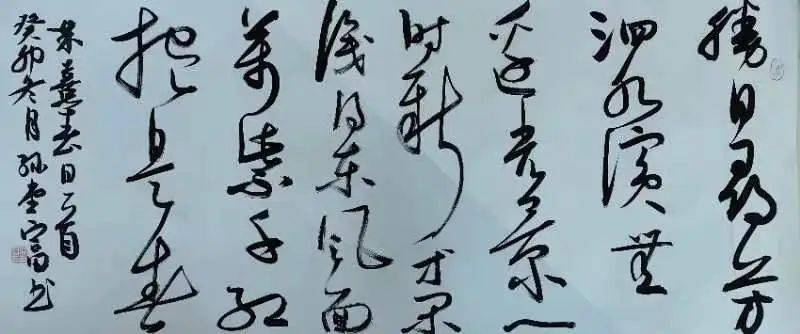 勝日尋芳
泗水濱無
邊光景一
時新等閑
識得東風面
萬紫千紅
總是春
朱熹春日一首
癸卯冬月孫堂富书